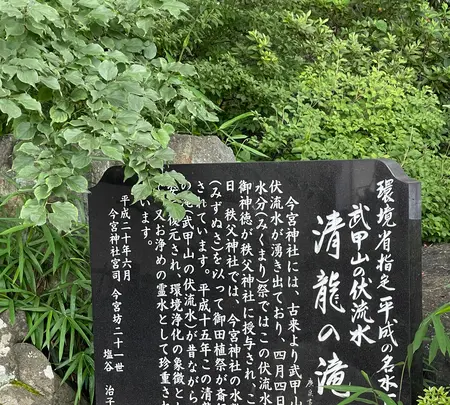 環境省指定 平成の名水
武甲山の伏流水
清龍の滝
今宮神社には、古来より武甲山
伏流水が湧き出ており、四月四日
水分(みくまり)祭ではこの伏流水
御神徳が秩父神社に授与され、こ
日 秩父神社では、今宮神社の水
(みずぬき)を以って御田植祭が斎
されています。平成十五年この清
の 滝(武甲山の伏流水)が昔ながら
復元され、環境浄化の象徴とし
又お浄めの霊水として珍重さ
います。
平成二十年六月
今宮神社宮司 今宮坊二十一世
塩谷 治子